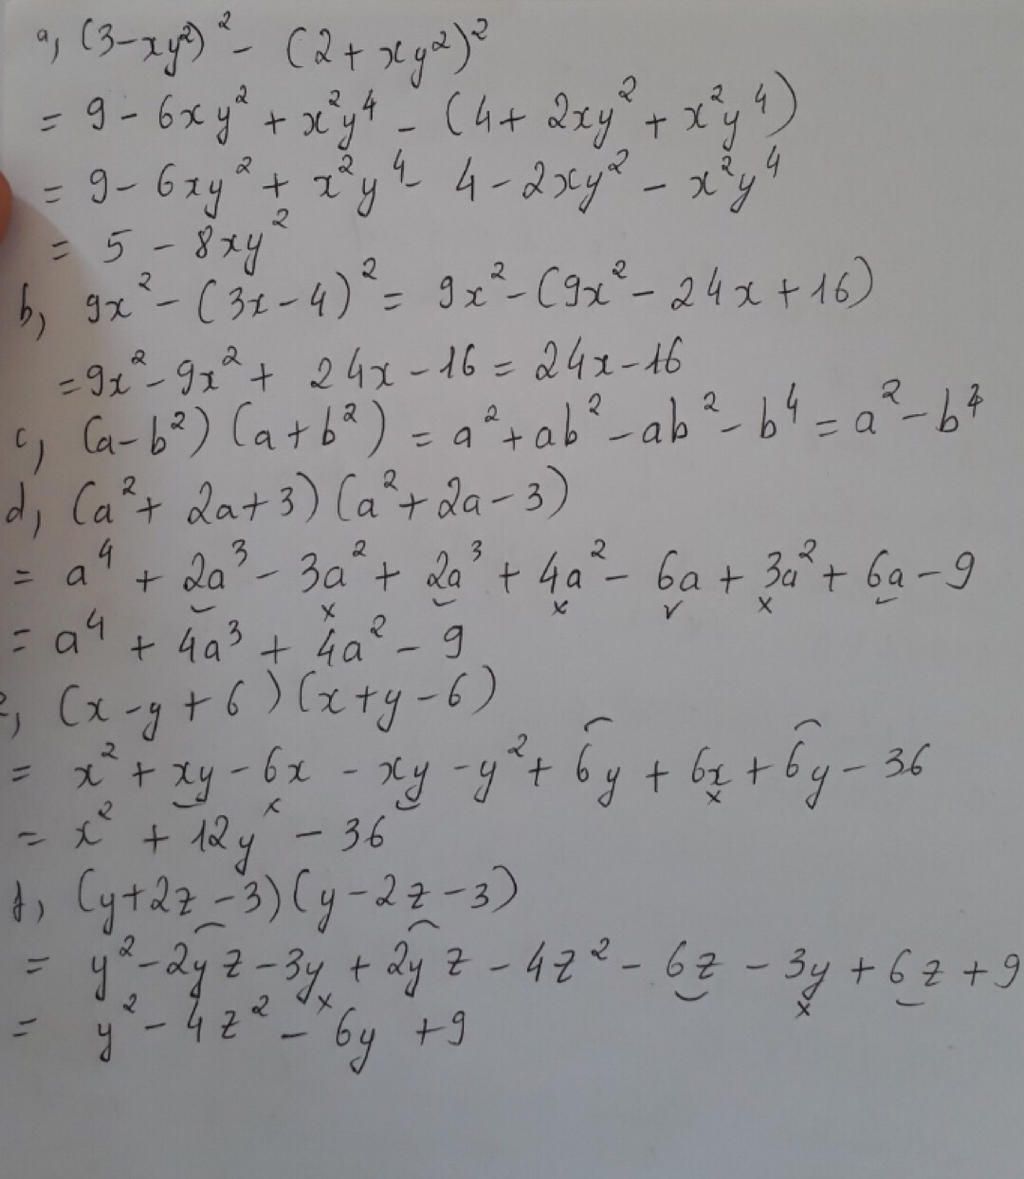 a, (3-xy²)² - (2+xy²)²
= 9 - 6xy² + x²y⁴ - (4+ 2xy² + x²y⁴)
= 9 - 6xy² + x²y⁴ - 4 - 2xy² - x²y⁴
= 5 - 8xy²
b, 9x² - (3x-4)² = 9x² - (9x² - 24x + 16)
= 9x² - 9x² + 24x - 16 = 24x - 16
c, (a-b²)(a+b²) = a² + ab² - ab² - b⁴ = a² - b⁴
d, (a² + 2a+3)(a² + 2a-3)
= a⁴ + 2a³ - 3a² + 2a³ + 4a² - 6a + 3a² + 6a - 9
= a⁴ + 4a³ + 4a² - 9
e, (x-y+6)(x+y-6)
= x² + xy - 6x - xy - y² + 6y + 6x + 6y - 36
= x² + 12y - 36
f, (y+2z-3)(y-2z-3)
= y² - 2yz - 3y + 2yz - 4z² - 6z - 3y + 6z + 9
= y² - 4z² - 6y + 9